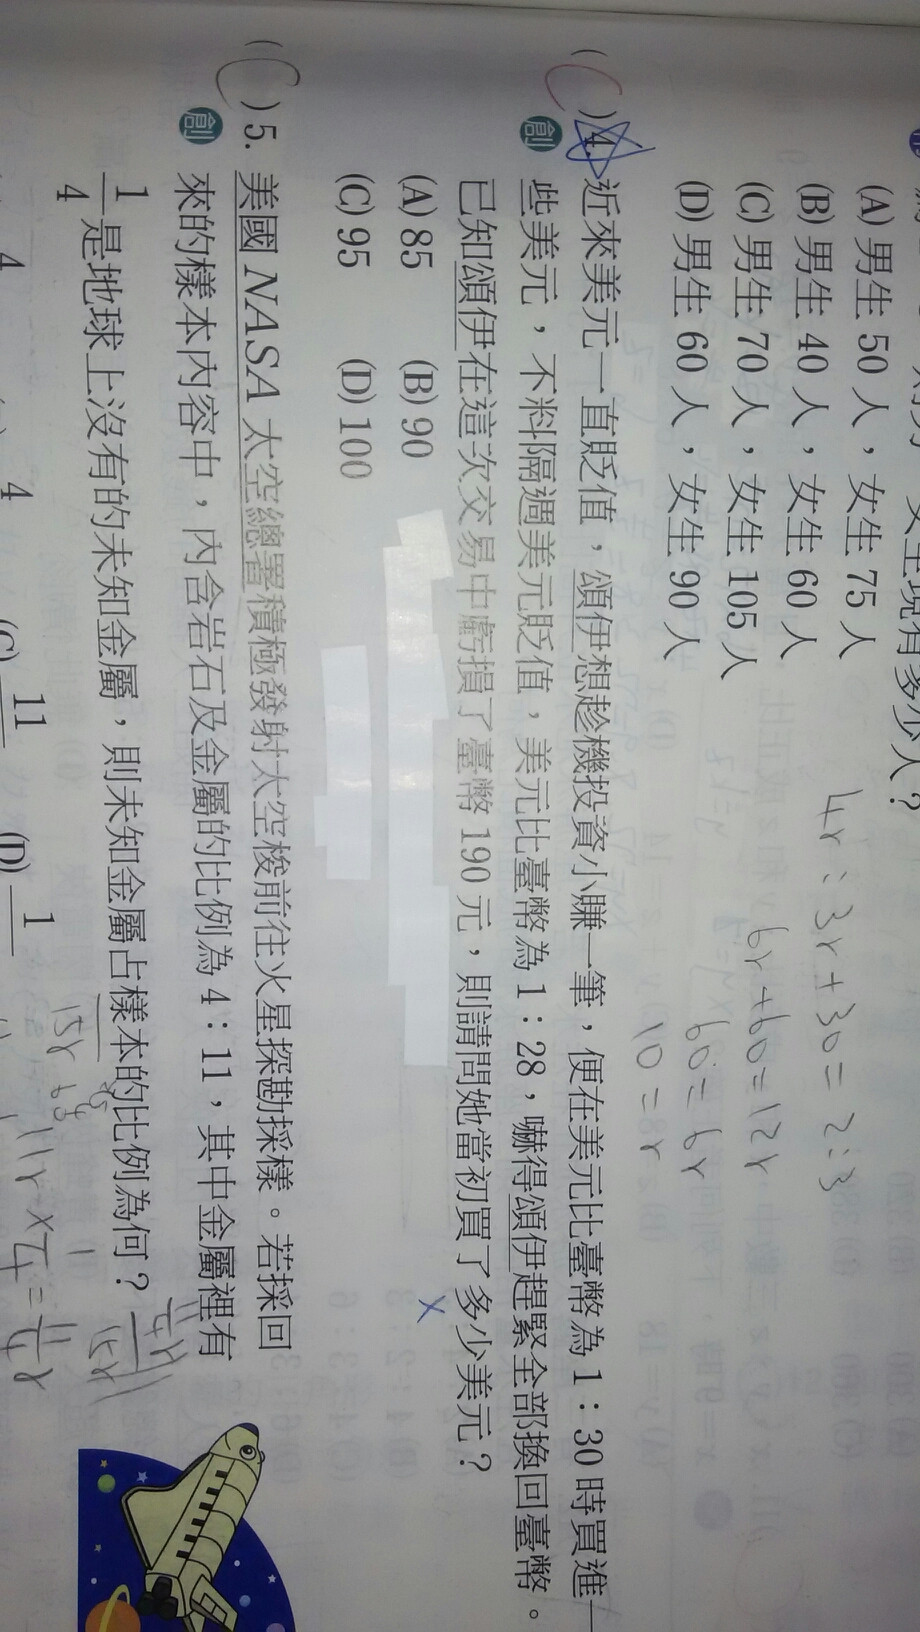 (A) 男生 50 人，女生 75 人
(B) 男生 40 人，女生 60 人
(C) 男生 70 人，女生 105 人
(D) 男生 60 人，女生 90 人
4r : 3r + 30 = 2 : 3
6r + 60 = 12r
60 = 6r
10 = r
( C ) 4. 近來美元一直貶值，頌伊想趁機投資小賺一筆，便在美元比臺幣為 1：30 時買進一
創 些美元，不料隔週美元貶值，美元比臺幣為 1：28，嚇得頌伊趕緊全部換回臺幣。
已知頌伊在這次交易中虧損了臺幣 190 元，則請問她當初買了多少美元？
x
(A) 85 (B) 90
(C) 95 (D) 100
( C ) 5. 美國 NASA 太空總署積極發射太空梭前往火星探勘採樣。若採回
創 來的樣本內容中，內含岩石及金屬的比例為 4：11，其中金屬裡有
1/4 是地球上沒有的未知金屬，則未知金屬占樣本的比例為何？
15r
11r × 1/4 = 11/4 r
4 4 (C) 11 (D) 1